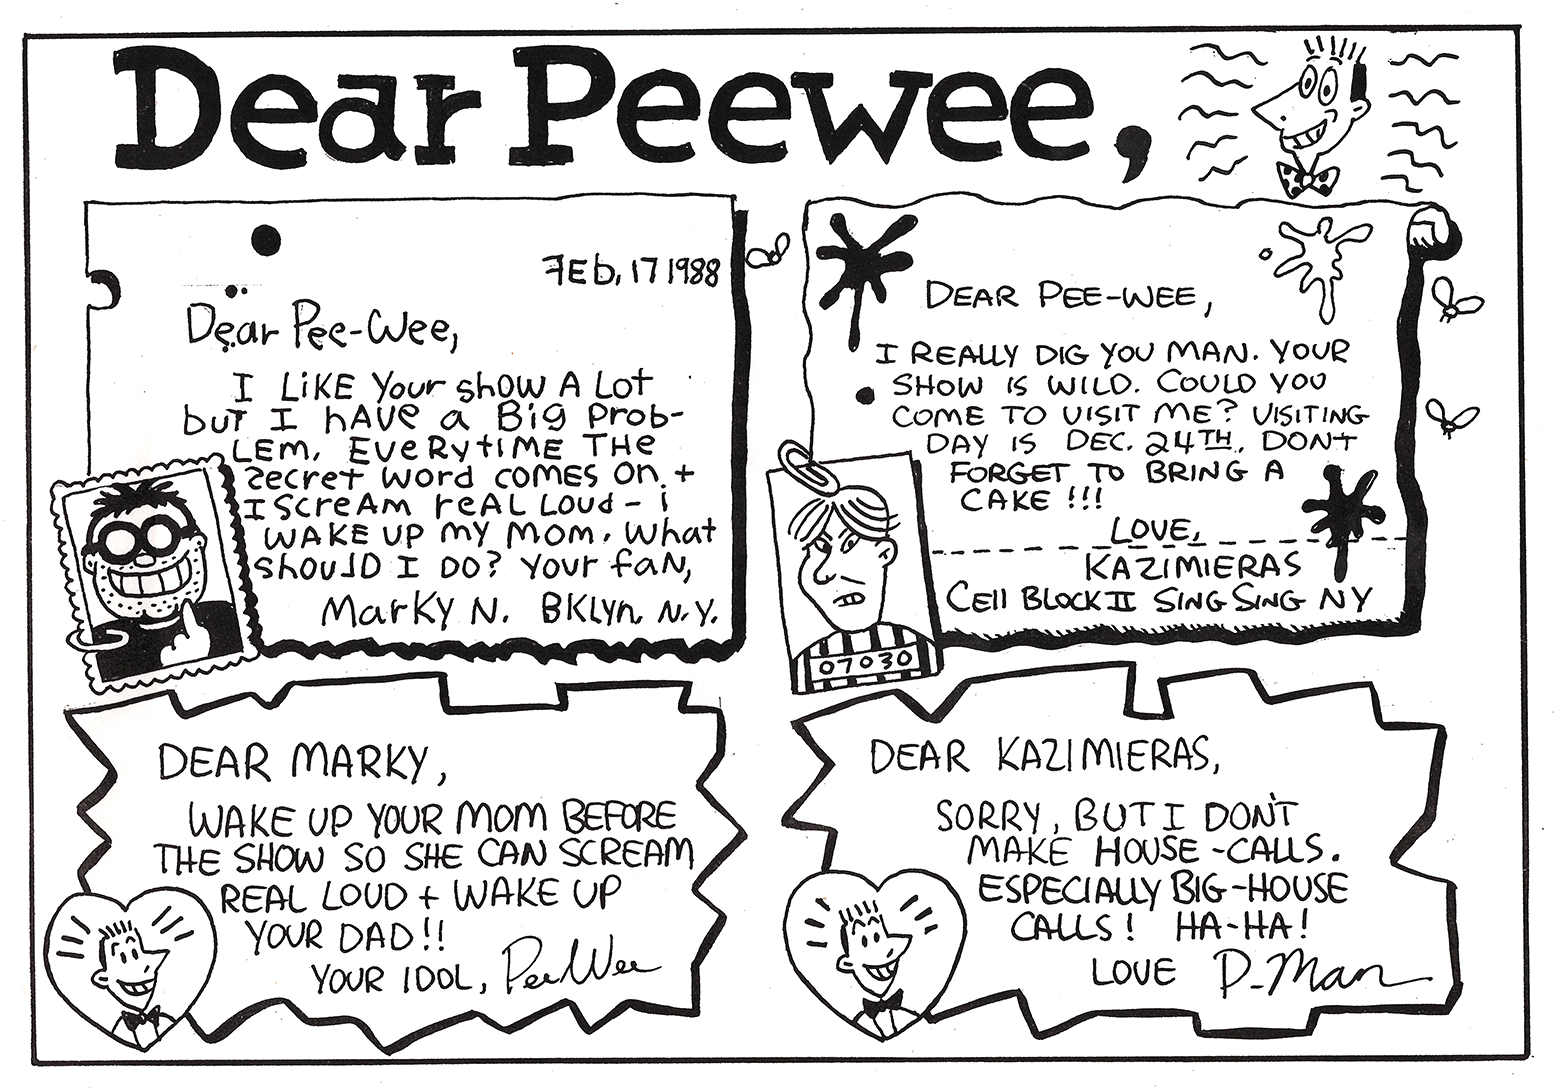 Dear Peewee,
FEb, 17 1988
Dear Pee-Wee,
I LiKE Your show A Lot
but I hAve a Big Prob-
LEM. EveRytiME THe
secret word comes on +
I scream reAL Loud - i
WAKE UP my Mom. What
should I DO? Your faN,
MarKy N. BKLyn. N.Y.
DEAR PEE-WEE,
I REALLY DIG YOU MAN. YOUR
SHOW IS WILD. COULD YOU
COME TO VISIT ME? VISITING
DAY IS DEC. 24TH. DON'T
FORGET TO BRING A
CAKE !!!
LOVE,
KAZIMIERAS
Cell BLOCK II SING SING NY
07030
DEAR MARKY,
WAKE UP YOUR MOM BEFORE
THE SHOW SO SHE CAN SCREAM
REAL LOUD + WAKE UP
YOUR DAD!!
YOUR IDOL, PeeWee
DEAR KAZIMIERAS,
SORRY, BUT I DON'T
MAKE HOUSE-CALLS.
ESPECIALLY BIG-HOUSE
CALLS! HA-HA!
LOVE P-Man